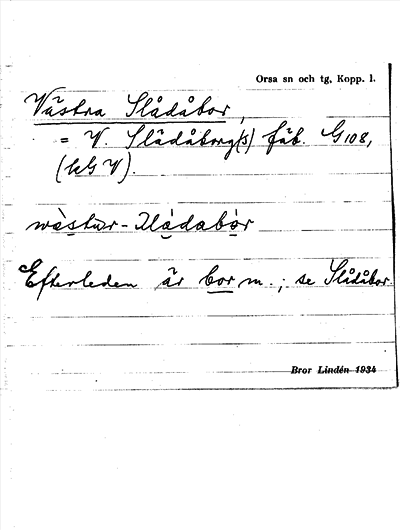 Orsa sn och tg, Kopp. l.
Västra Slådåbor,
= V. Slådåborg(s) fäb. G 108,
(kG V).
wàstur-slådabòr
Efterleden är bor m.; se Slådåbor.
Bror Lindén 1934